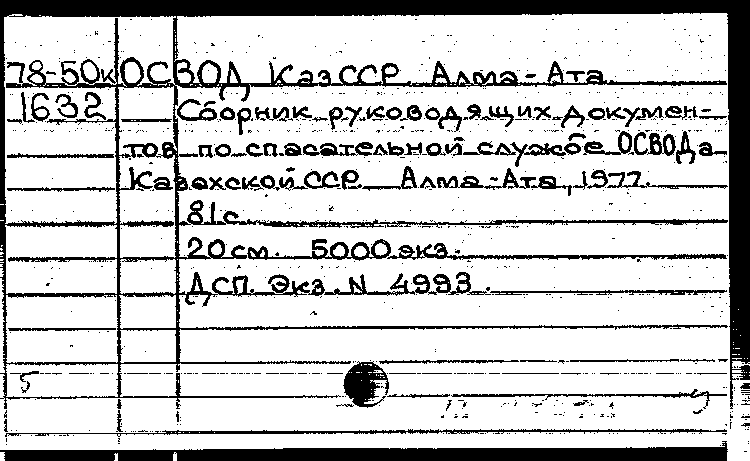 78-50к ОСВОД КазССР. Алма-Ата.
1632 Сборник руководящих докумен-
тов по спасательной службе ОСВОДа
Казахской ССР. Алма-Ата, 1977.
81 с.
20 см. 5000 экз.
ДСП. Экз. N 4993.
5